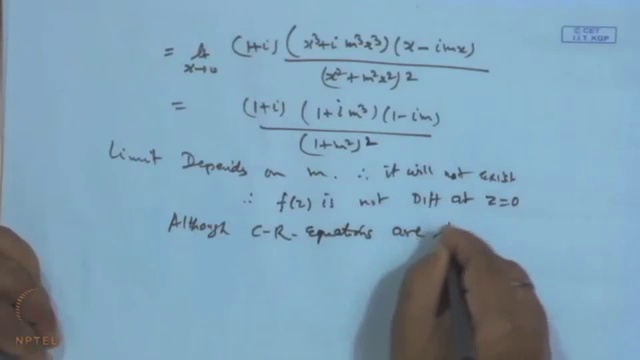 © CET
I.I.T. KGP
= lt x→0 (1+i) (x³+i m³x³) (x-imx) / (x²+m²x²)²
= (1+i) (1+i m³) (1-im) / (1+m²)²
Limit Depends on m. ∴ it will not exist
∴ f(z) is not Diff at z=0
Although C-R- Equations are
NPTEL